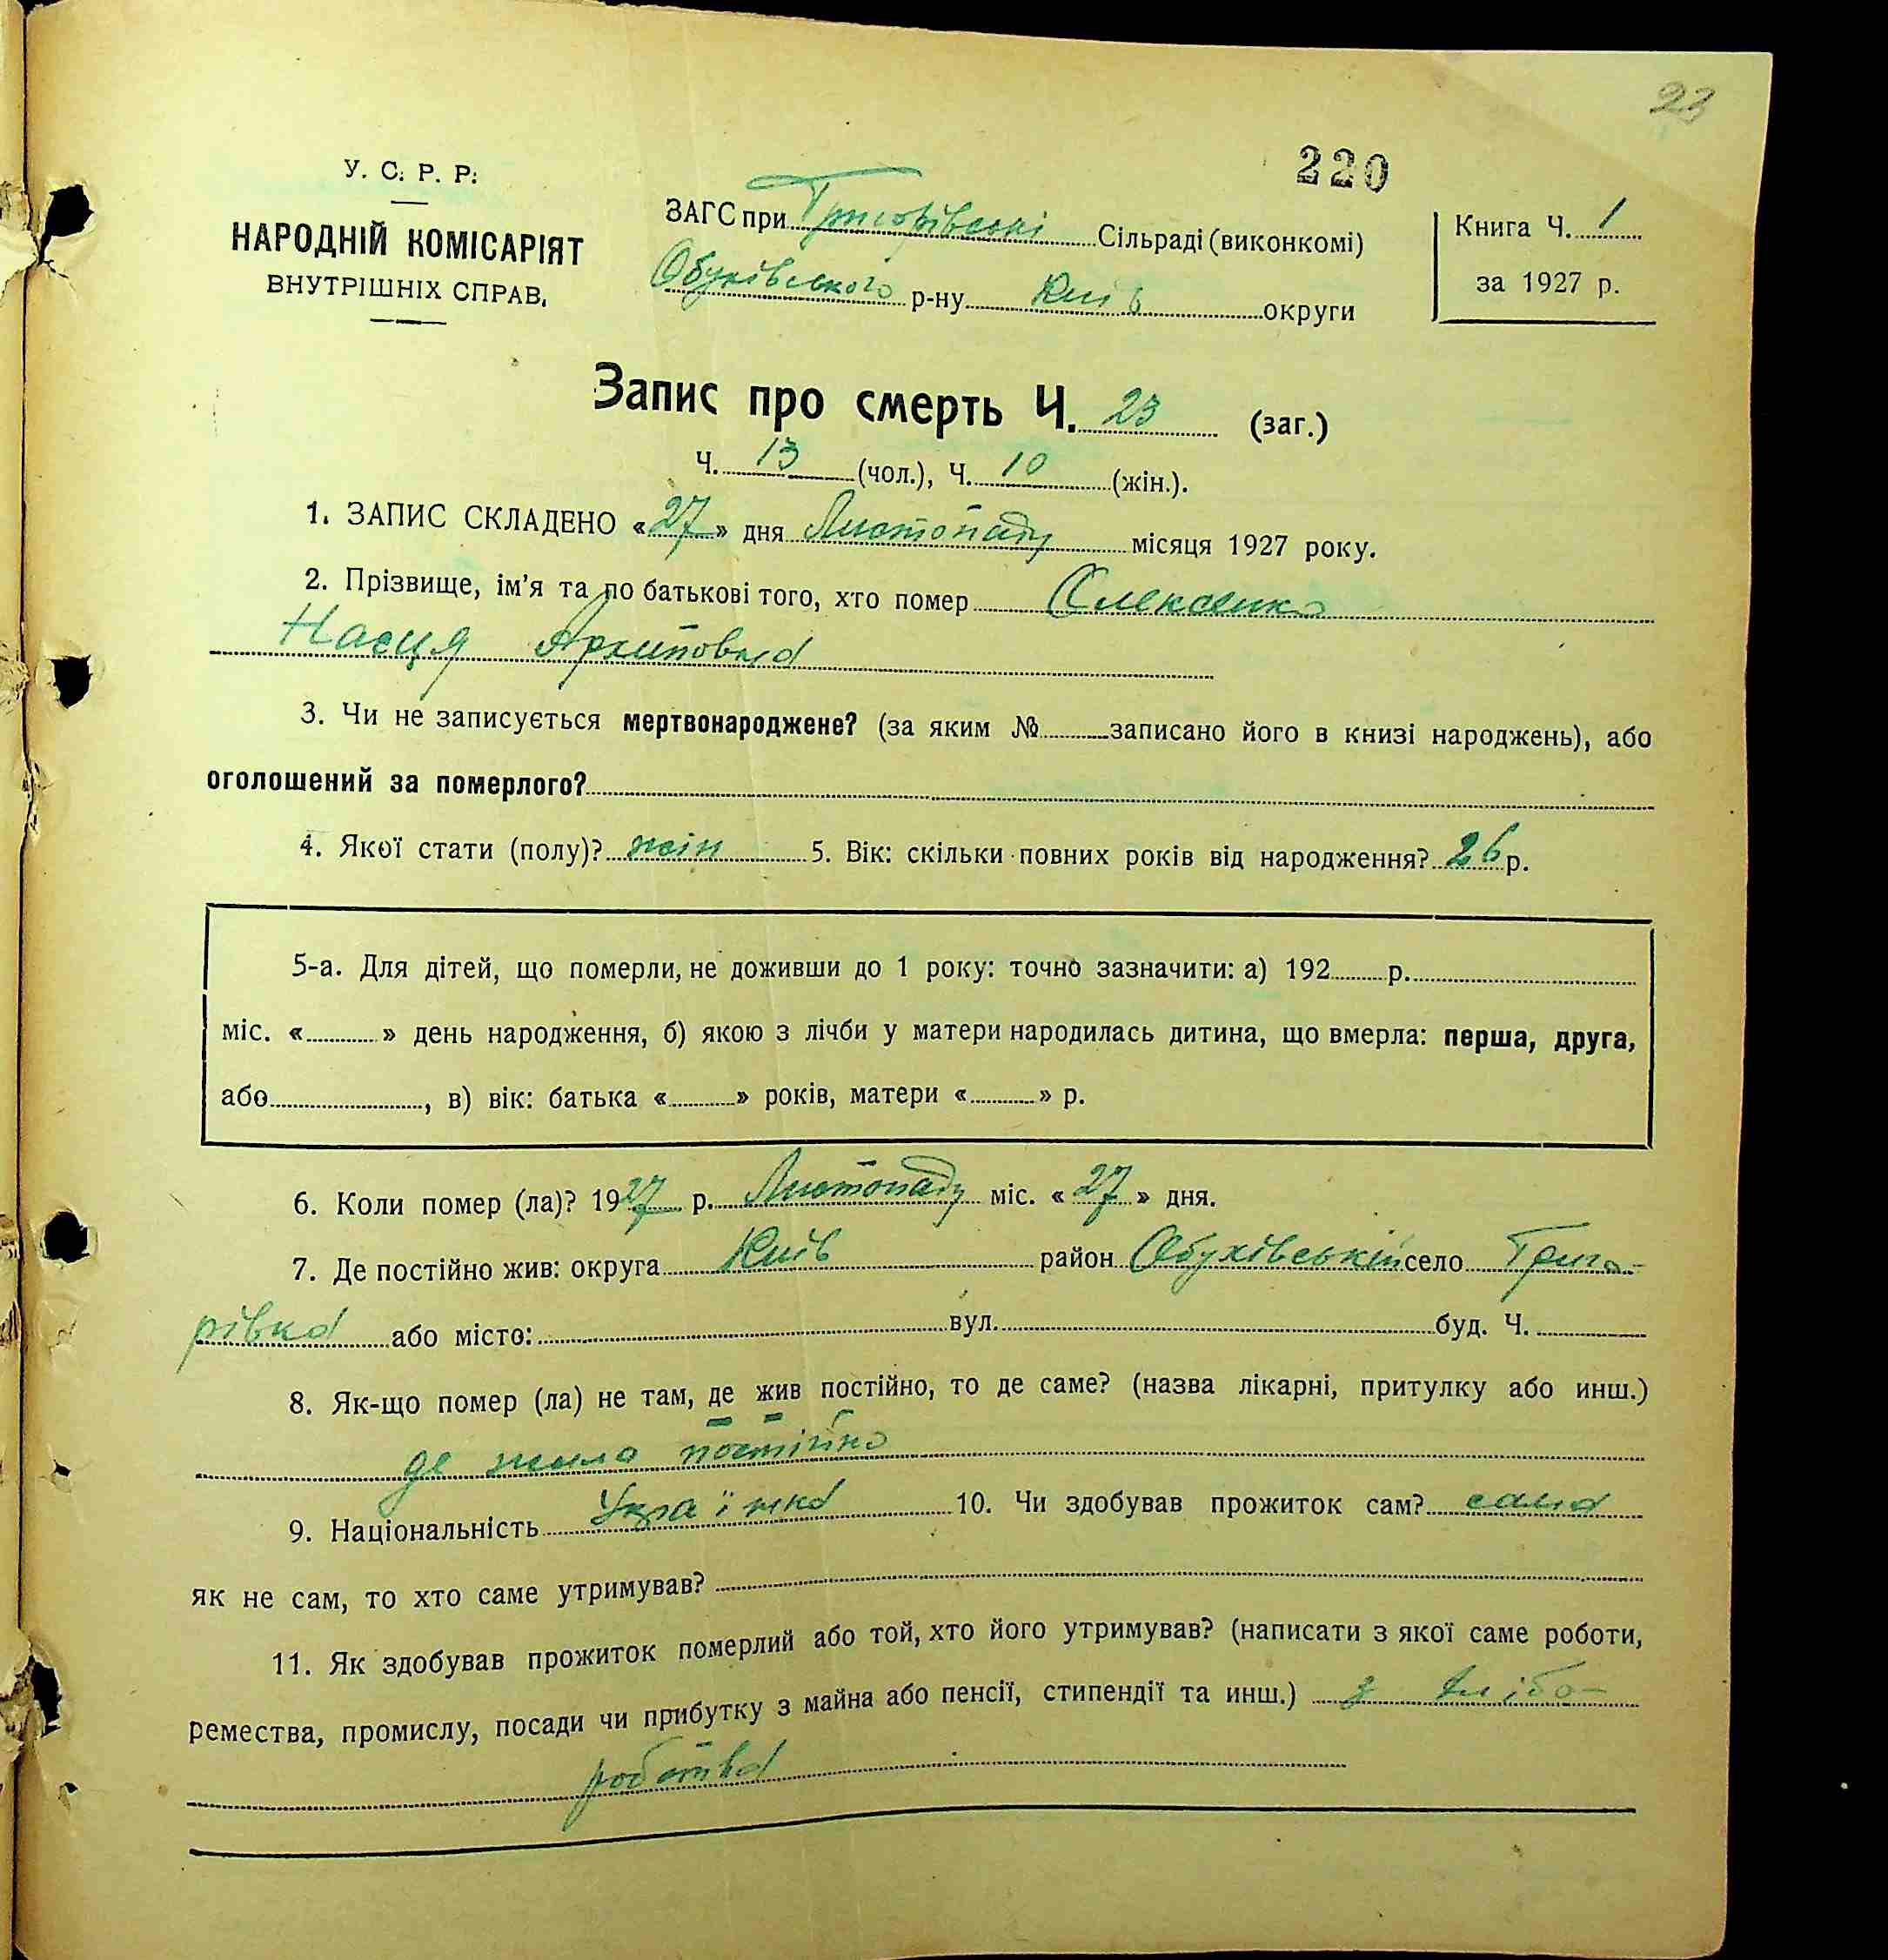 23
220
У. С. Р. Р.
НАРОДНІЙ КОМІСАРІЯТ
ВНУТРІШНІХ СПРАВ.
ЗАГС при Григорівські Сільраді (виконкомі)
Обухівського р-ну Київ округи
Книга Ч. 1
за 1927 р.
Запис про смерть Ч. 23 (заг.)
Ч. 13 (чол.), Ч. 10 (жін.).
1. ЗАПИС СКЛАДЕНО «27» дня Листопаду місяця 1927 року.
2. Прізвище, ім'я та по батькові того, хто помер Олексенко
Насця Архиповна
3. Чи не записується мертвонароджене? (за яким № записано його в книзі народжень), або
оголошений за померлого?
4. Якої стати (полу)? жін 5. Вік: скільки повних років від народження? 26 р.
5-а. Для дітей, що померли, не доживши до 1 року: точно зазначити: а) 192 р.
міс. « » день народження, б) якою з лічби у матери народилась дитина, що вмерла: перша, друга,
або , в) вік: батька « » років, матери « » р.
6. Коли помер (ла)? 1927 р. Листопаду міс. «27» дня.
7. Де постійно жив: округа Київ район Обухівський село Григо-
рівка або місто: вул. буд. Ч.
8. Як-що помер (ла) не там, де жив постійно, то де саме? (назва лікарні, притулку або инш.)
де жила постійно
9. Національність Українка 10. Чи здобував прожиток сам? сама
як не сам, то хто саме утримував?
11. Як здобував прожиток померлий або той, хто його утримував? (написати з якої саме роботи,
ремества, промислу, посади чи прибутку з майна або пенсії, стипендії та инш.) з хлібо-
робства